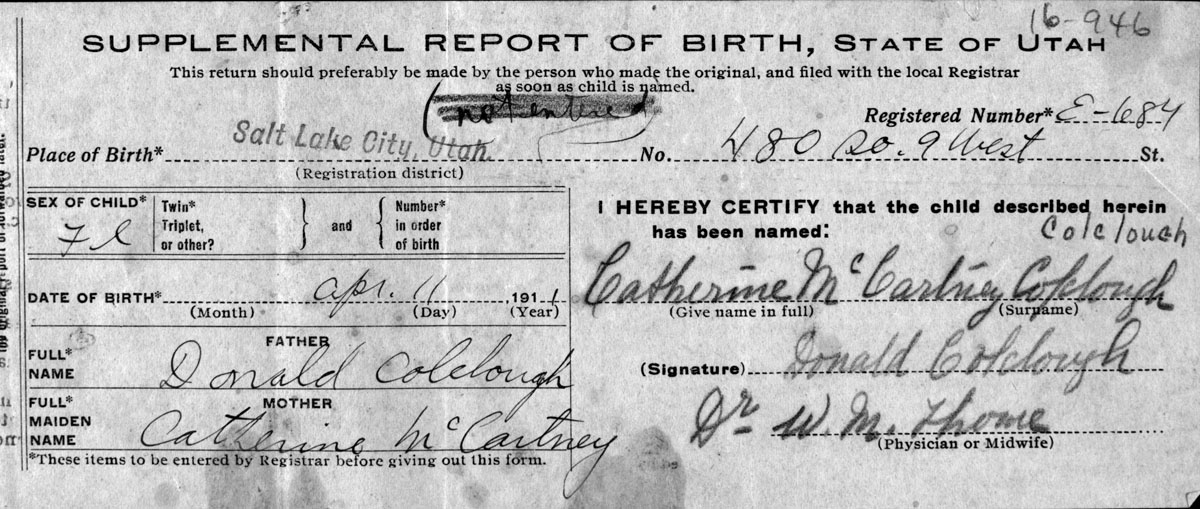 16-946
SUPPLEMENTAL REPORT OF BIRTH, STATE OF UTAH
This return should preferably be made by the person who made the original, and filed with the local Registrar
as soon as child is named.
(not entered)
Registered Number* E-684
Place of Birth* Salt Lake City, Utah. No. 480 So. 9 West St.
(Registration district)
SEX OF CHILD* Fl
Twin* Triplet, or other? } and { Number* in order of birth
I HEREBY CERTIFY that the child described herein
has been named:
Colclough
Catherine McCartney Colclough
(Give name in full) (Surname)
DATE OF BIRTH* Apr. 11 1911
(Month) (Day) (Year)
FATHER
FULL* NAME Donald Colclough
(Signature) Donald Colclough
MOTHER
FULL* MAIDEN NAME Catherine McCartney
Dr W. M. Thome
(Physician or Midwife)
*These items to be entered by Registrar before giving out this form.